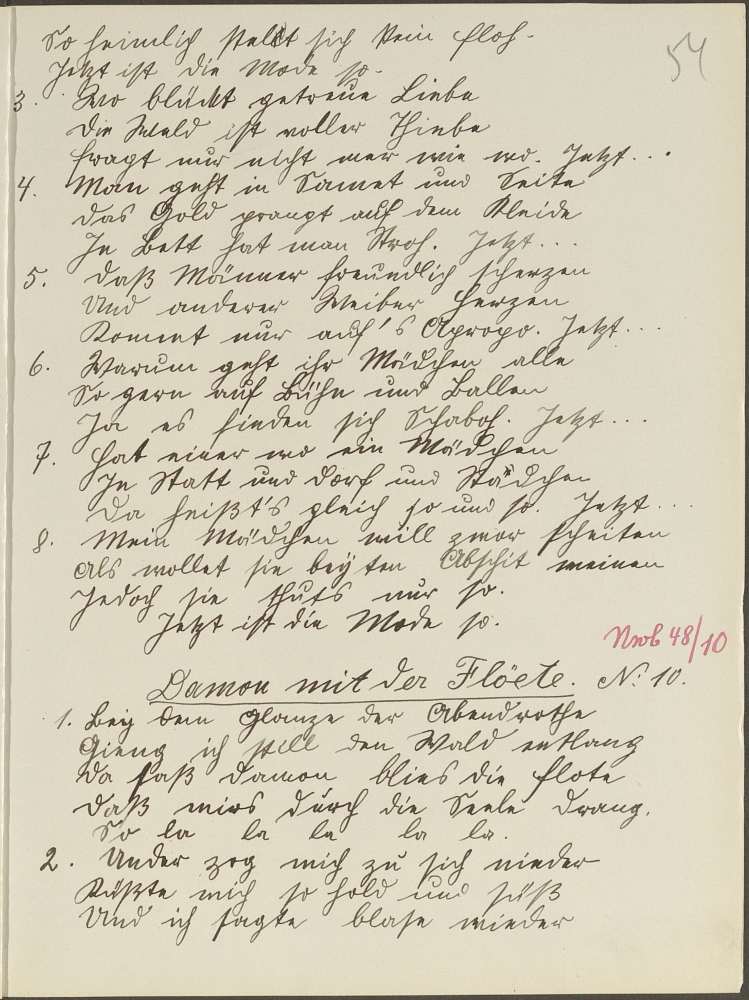 So heimlich stellt sich kein Floh -
54
Jetzt ist die Mode so.
3. Wo blückt getreue Liebe
Die Weld ist voller Thiebe
fragt nur nicht mer wie wo. Jetzt...
4. Man geht in Samet und Seite
Das Gold prangt auf dem Kleide
In Bett hat man Stroh. Jetzt...
5. Daß Männer freundlich scherzen
Und anderer Weiber Herzen
Kommt nur auf's Apropo. Jetzt...
6. Warum geht ihr Mädchen alle
So gern auf Bühn und Ballen
Ja es finden sich Schaboh. Jetzt...
7. Hat einer wo ein Mädchen
In Statt und Dorf und Städchen
Da heißt's gleich so und so. Jetzt...
8. Mein Mädchen will zwar scheiten
Als wollet sie bey ten Abschit weinen
Jedoch sie thuts nur so.
Jetzt ist die Mode so.
Nwb 48/10
Damon mit der Flöete. No: 10.
1. Bey dem Glanze der Abendrothe
Gieng ich still den Wald entlang
Da saß Damon blies die Flote
Daß mirs durch die Seele drang.
So la la la la la.
2. Under zog mich zu sich nieder
Küßte mich so hold und süß
Und ich sagte blase wieder